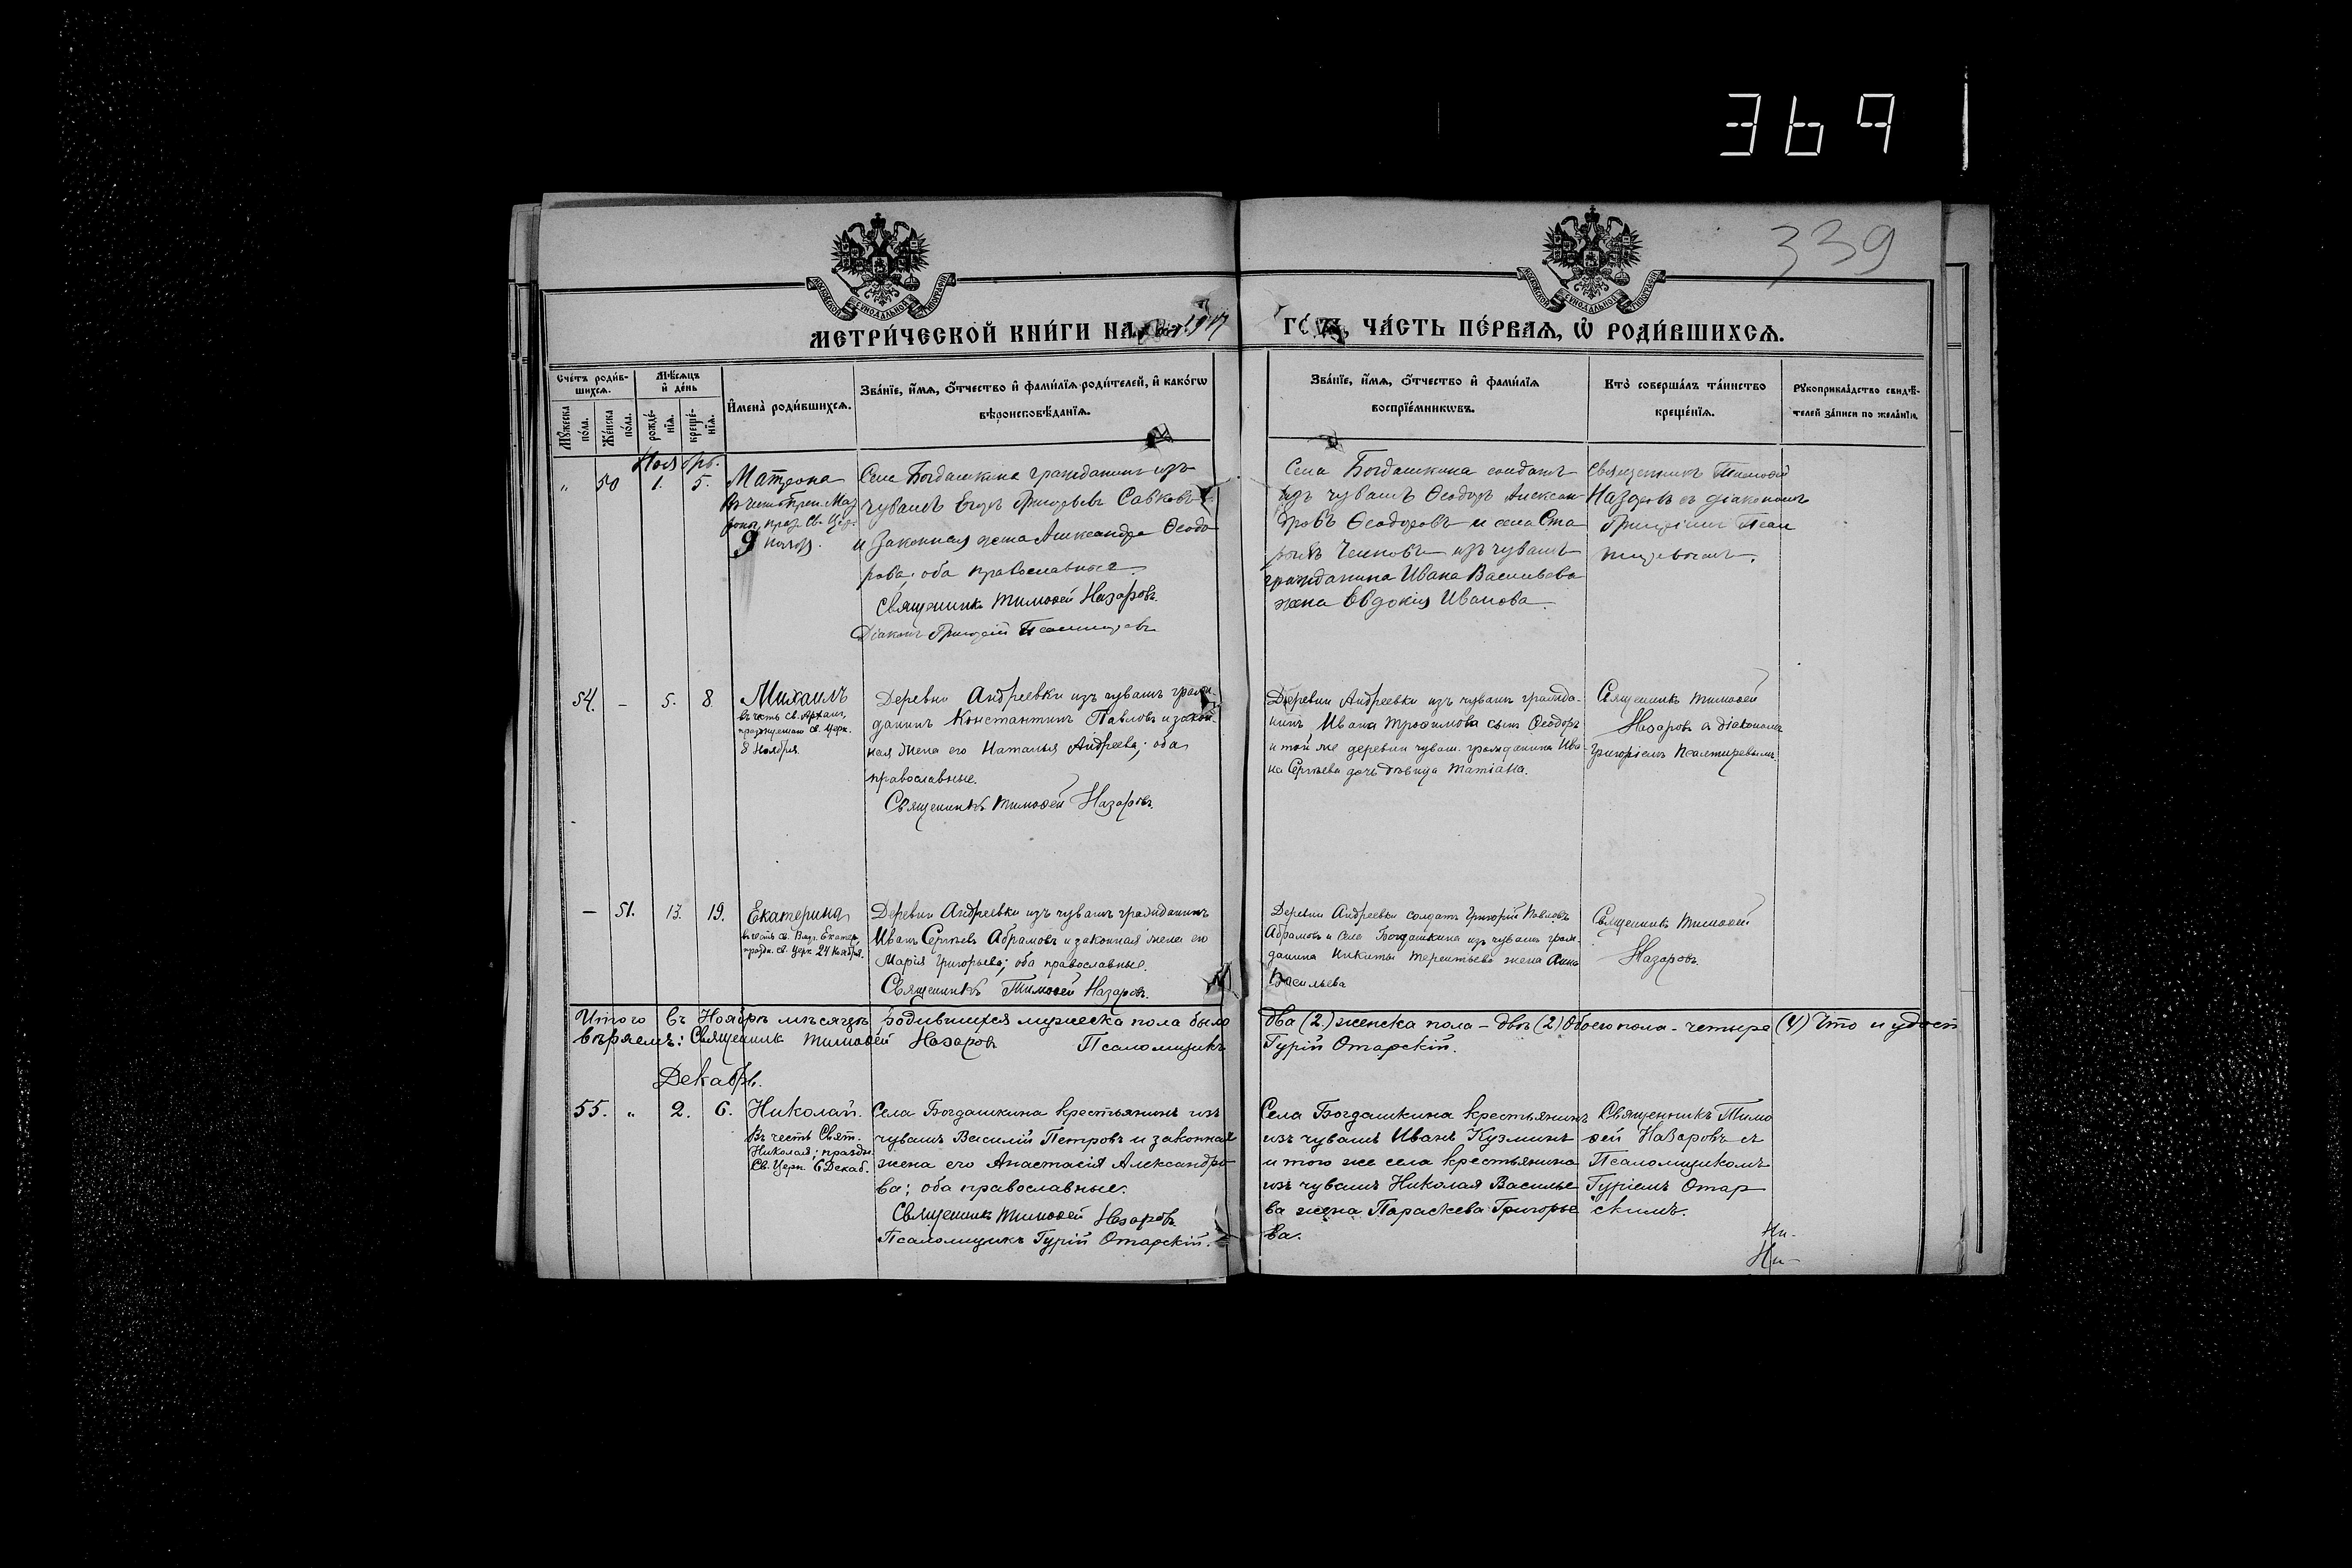 369
339
МОСКОВСКОЙ СѴНОДАЛЬНОЙ ТИПОГРАФІИ
МОСКОВСКОЙ СѴНОДАЛЬНОЙ ТИПОГРАФІИ
МЕТРИ́ЧЕСКОЙ КНИ́ГИ НА 1917 ГО́ДЪ, ЧА́СТЬ ПЕ́РВАѦ, Ѡ҆ РОДИ́ВШИХСѦ.
Сче́тъ роди́в-
шихсѧ.
Мꙋ́жеска
по́ла.
Же́нска
по́ла.
Мѣ́сѧцъ
и҆ де́нь
рожде́-
нїѧ.
креще́-
нїѧ.
И҆мена̀ роди́вшихсѧ.
Зва́нїе, и҆́мѧ, ѻ҆́тчество и҆ фами́лїѧ роди́телей, и҆ како́гѡ
вѣроисповѣ́данїѧ.
Зва́нїе, и҆́мѧ, ѻ҆́тчество и҆ фами́лїѧ
воспрїе́мникѡвъ.
Кто̀ соверша́лъ та́инство
креще́нїѧ.
Рꙋкоприкла́дство свидѣ́-
телей за́писи по жела́нїю.
Ноябрь.
„ 50 1. 5.
Матрона
Въ честь Преп. Мат
роны, празд. Св. Церк.
9 Нояб.
Села Богдашкина гражданинъ изъ
чувашъ Егоръ Григорьевъ Савковъ
и законная жена Александра Ѳеодо
рова; оба православные.
Священникъ Тимоѳей Назаровъ.
Діаконъ Григорій Псалтыревъ
Села Богдашкина солдатъ
изъ чувашъ Ѳеодоръ Алексан
дровъ Ѳеодоровъ и села Ста
рыхъ изъ чувашъ
гражданина Ивана Васильева
жена Евдокія Иванова.
Священникъ Тимоѳей
Назаровъ съ діакономъ
Григоріемъ Псал
тыревымъ.
54. – 5. 8
Михаилъ
въ честь св. Архан.,
празднуемаго св. Церк.
8 Ноября.
Деревни Андреевки изъ чувашъ граж
данинъ Константинъ Павловъ и закон
ная жена его Наталья Андреева; оба
православные.
Священникъ Тимоѳей Назаровъ.
Деревни Андреевки изъ чувашъ гражда-
нинъ Ивана Трофимова сынъ Ѳеодоръ
и той же деревни чуваш. гражданина Ива-
на Сергѣева дочь дѣвица Татіана.
Священникъ Тимоѳей
Назаровъ съ діакономъ
Григоріемъ Псалтыревымъ.
– 51. 13. 19.
Екатерина
въ честь св. Влмч. Екатер.
праздн. св. Церк. 24 Ноября.
Деревни Андреевки изъ чувашъ гражданинъ
Иванъ Сергѣевъ Абрамовъ и законная жена его
Марія Григорьева; оба православные.
Священникъ Тимоѳей Назаровъ.
Деревни Андреевки солдатъ Григорій Павловъ
Абрамовъ и села Богдашкина изъ чувашъ граж-
данина Никиты Терентьева жена Анна
Васильева
Священникъ Тимоѳей
Назаровъ.
Итого въ Ноябрѣ мѣсяцѣ родившихся мужеска пола было два (2.) женска пола – двѣ (2) Обоего пола – четыре (4) Что и удост
вѣряемъ: Священникъ Тимоѳей Назаровъ Псаломщикъ Гурій Отарскій.
Декабрь.
55. „ 2. 6.
Николай.
Въ честь Свят.
Николая; праздн.
Св. Церк. 6 Декаб.
Села Богдашкина крестьянинъ изъ
чувашъ Василій Петровъ и законная
жена его Анастасія Александро
ва; оба православные.
Священникъ Тимоѳей Назаровъ.
Псаломщикъ Гурій Отарскій.
Села Богдашкина крестьянинъ
изъ чувашъ Иванъ Кузминъ
и того же села крестьянина
изъ чувашъ Николая Василье
ва жена Параскева Григорье
ва.
Священникъ Тимо
ѳей Назаровъ съ
Псаломщикомъ
Гуріемъ Отар
скимъ.
Ни-
Ни-